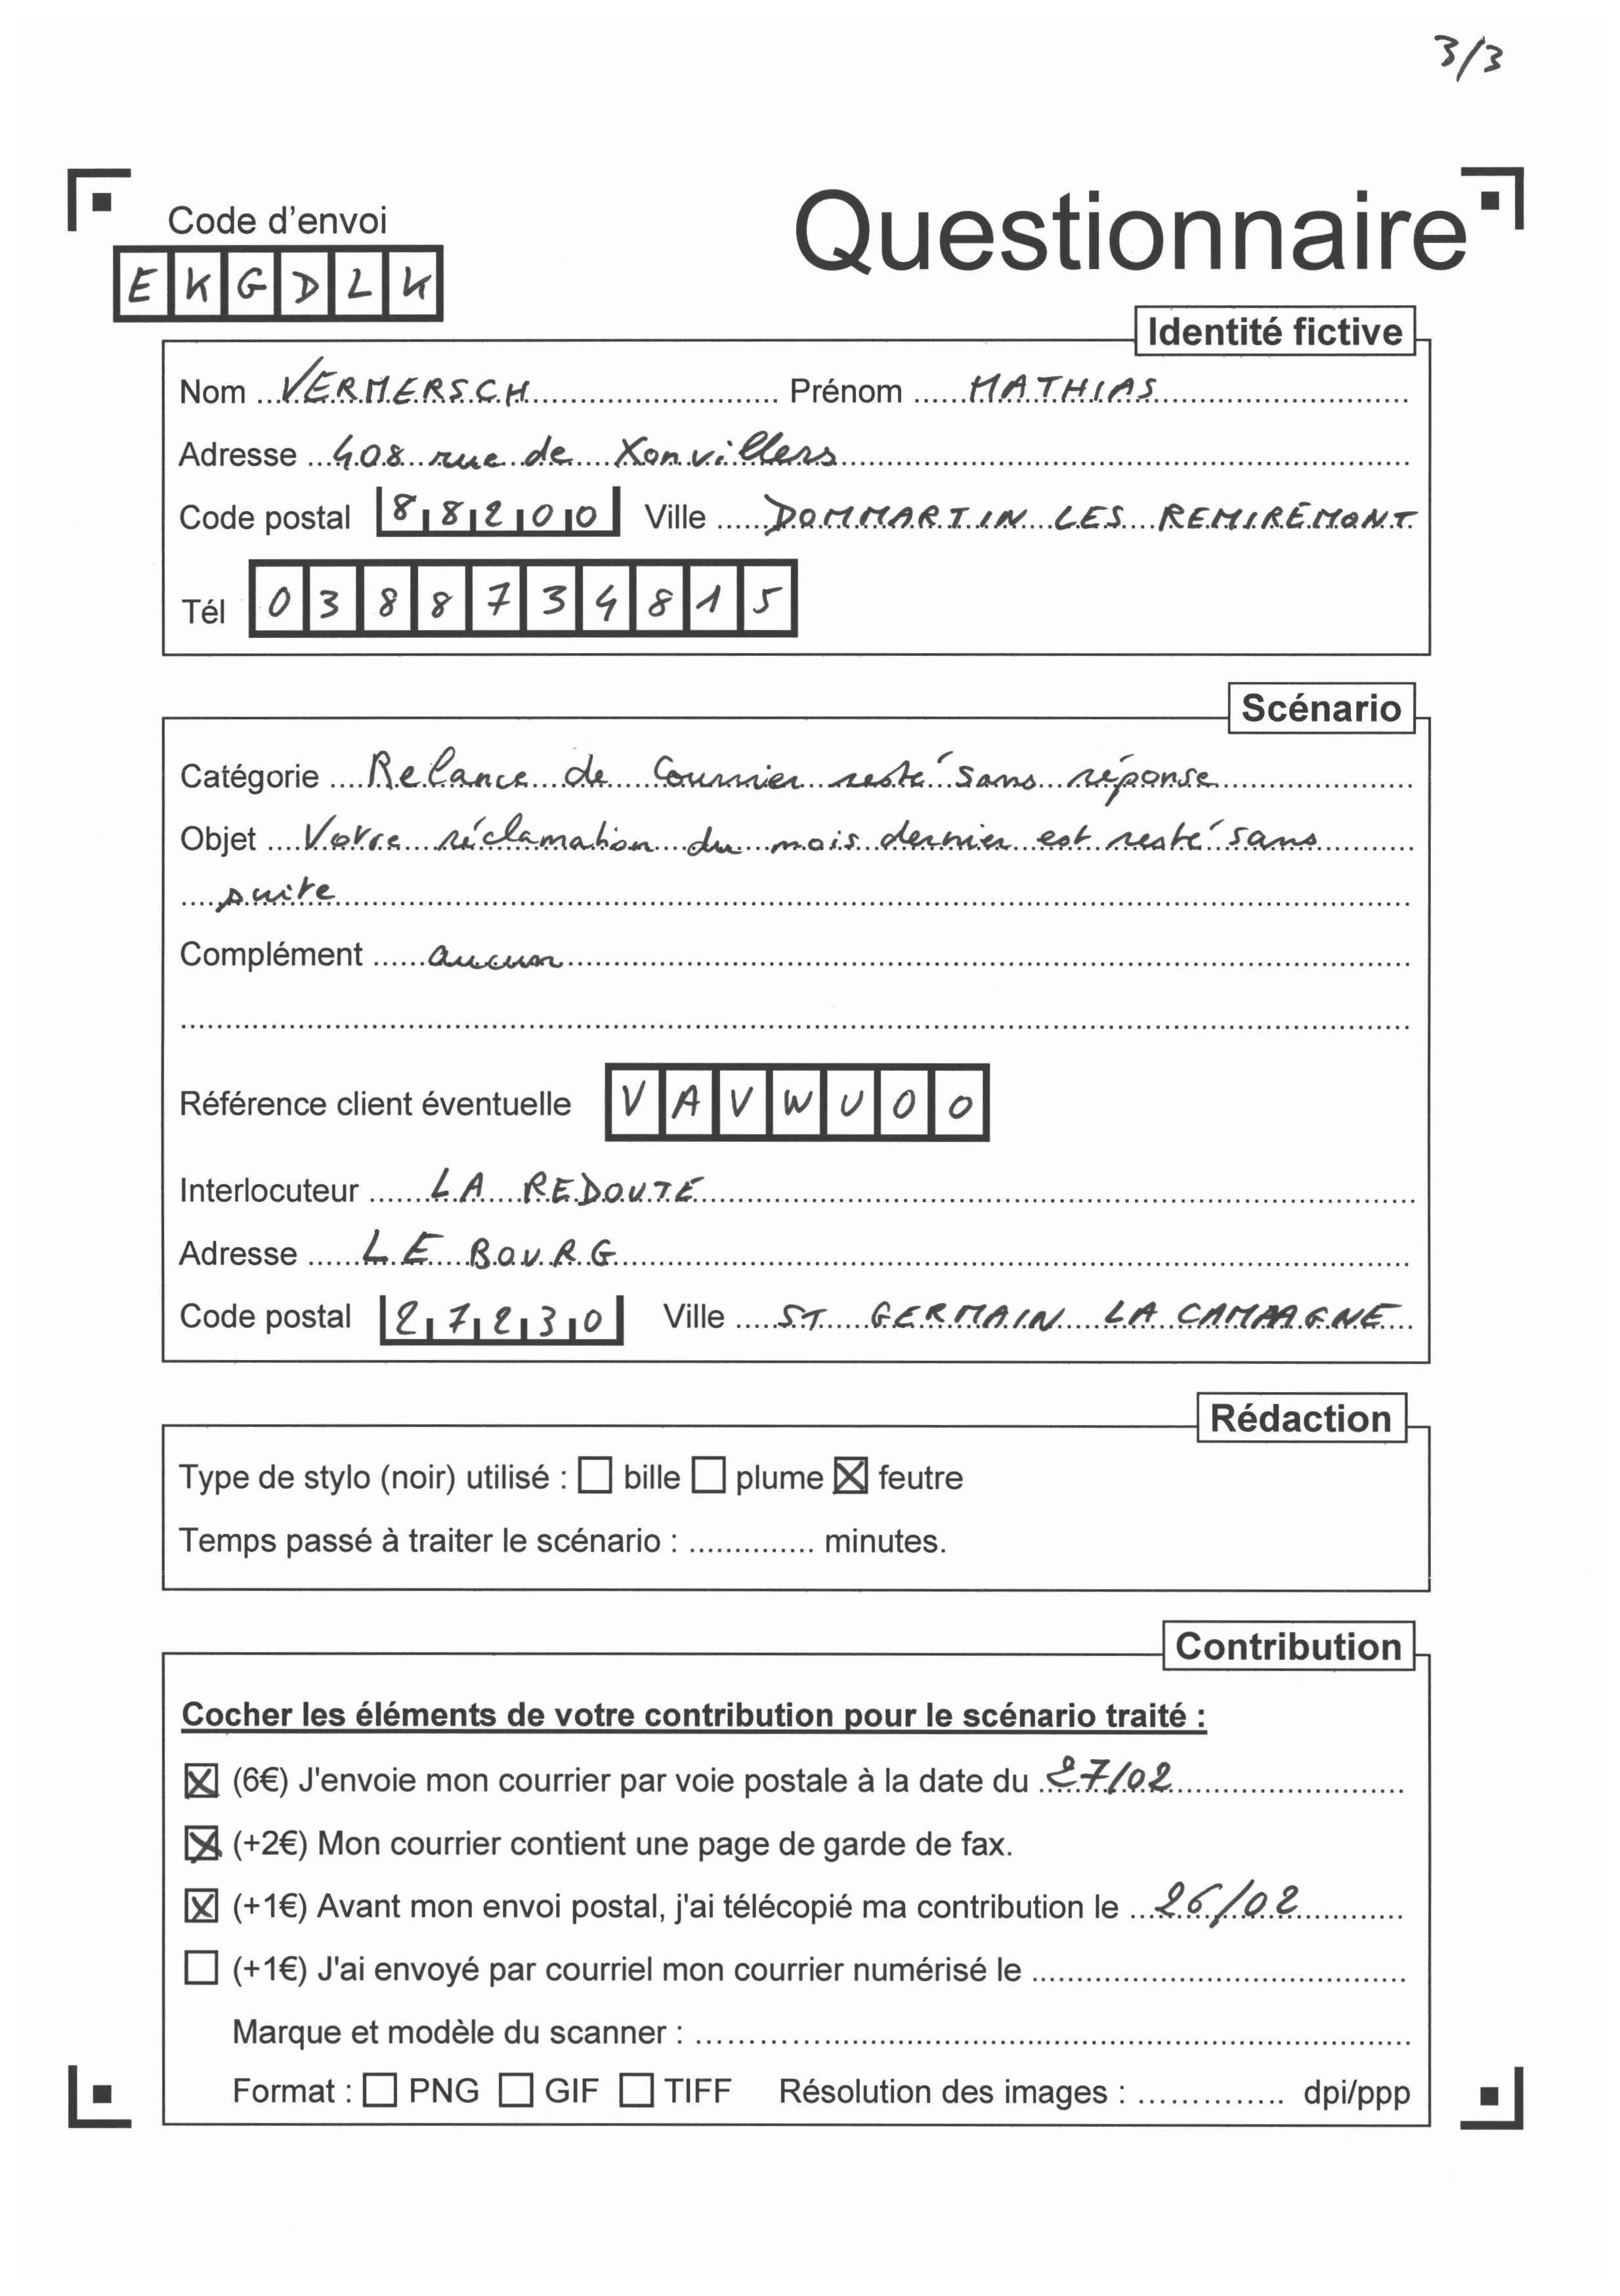 3/3
Code d'envoi
Questionnaire
E K G D L K
Identité fictive
Nom VERMERSCH Prénom MATHIAS
Adresse 408 rue de Xonvillers
Code postal 88200 Ville DOMMARTIN LES REMIREMONT
Tél 0388734815
Scénario
Catégorie Relance de Courrier resté sans réponse
Objet Votre réclamation du mois dernier est resté sans
suite
Complément aucun
Référence client éventuelle VAVWU00
Interlocuteur LA REDOUTE
Adresse LE BOURG
Code postal 27230 Ville ST GERMAIN LA CAMPAGNE
Rédaction
Type de stylo (noir) utilisé : ☐ bille ☐ plume ☒ feutre
Temps passé à traiter le scénario : .............. minutes.
Contribution
Cocher les éléments de votre contribution pour le scénario traité :
☒ (6€) J'envoie mon courrier par voie postale à la date du 27/02
☒ (+2€) Mon courrier contient une page de garde de fax.
☒ (+1€) Avant mon envoi postal, j'ai télécopié ma contribution le 26/02
☐ (+1€) J'ai envoyé par courriel mon courrier numérisé le
Marque et modèle du scanner :
Format : ☐ PNG ☐ GIF ☐ TIFF Résolution des images : ............... dpi/ppp